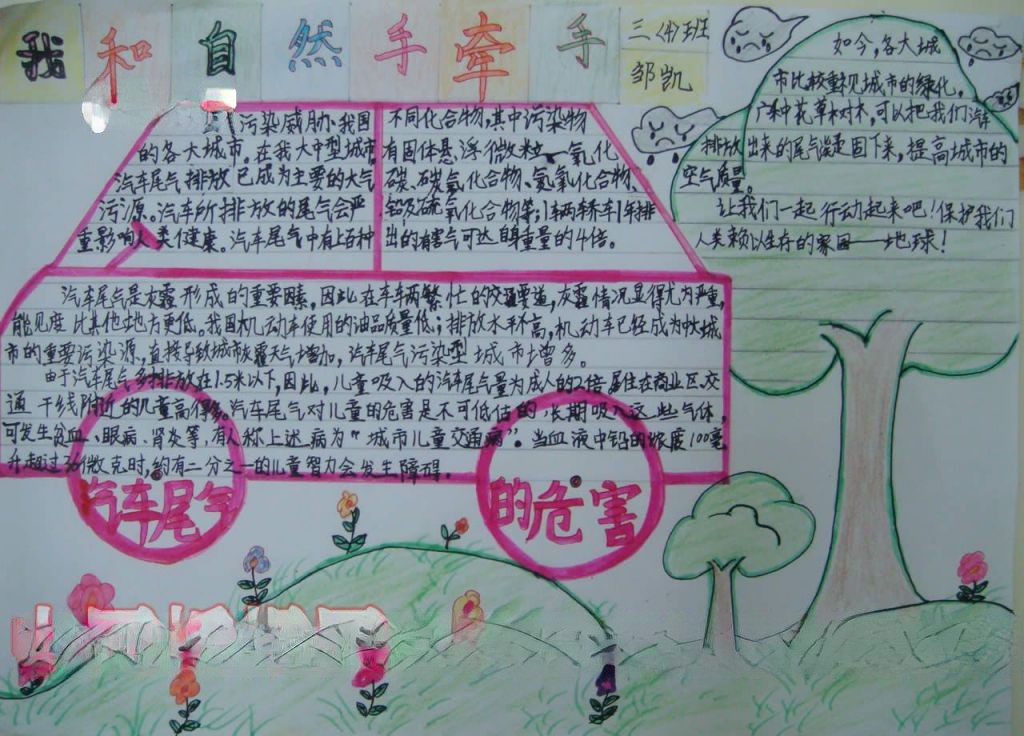 我和自然手牵手
三（4）班
邹凯
污染威胁、我国
的各大城市。在我大中型城市
汽车尾气排放已成为主要的大气
污源。汽车所排放的尾气会严
重影响人类健康。汽车尾气中有上百种
不同化合物,其中污染物
有固体悬浮微粒、一氧化
碳、碳氢化合物、氮氧化合物、
铅及硫氧化合物等;1辆轿车1年排
出的有害气可达自身重量的4倍。
汽车尾气是灰霾形成的重要因素,因此在车车辆繁忙的交通要道,灰霾情况显得尤为严重,
能见度比其他地方更低。我国机动车使用的油品质量低;排放水平不高,机动车已经成为城
市的重要污染源,直接导致城市灰霾天气增加,汽车尾气污染型城市增多。
由于汽车尾气多排放在1.5米以下,因此,儿童吸入的汽车尾气量为成人的2倍居住在商业区、交
通干线附近的儿童高得多。汽车尾气对儿童的危害是不可低估的,长期吸入这些气体,
可发生贫血、眼病、肾炎等,有人称上述病为“城市儿童交通病”。当血液中铅的浓度100毫
升超过36微克时,约有二分之一的儿童智力会发生障碍。
汽车尾气
的危害
如今,各大城
市比较重视城市的绿化。
广种花草树木,可以把我们汽车
排放出来的尾气滤回下来,提高城市的
空气质量。
让我们一起行动起来吧!保护我们
人类赖以生存的家园——地球!